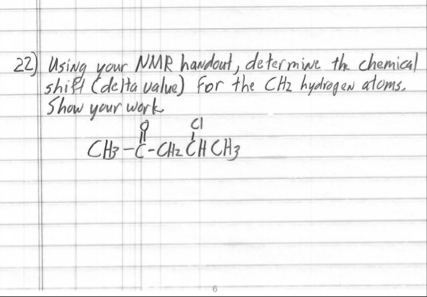 22) Using your NMR handout, determine the chemical
shift (delta value) for the CH2 hydrogen atoms.
Show your work
O Cl
CH3-C-CH2CHCH3
6